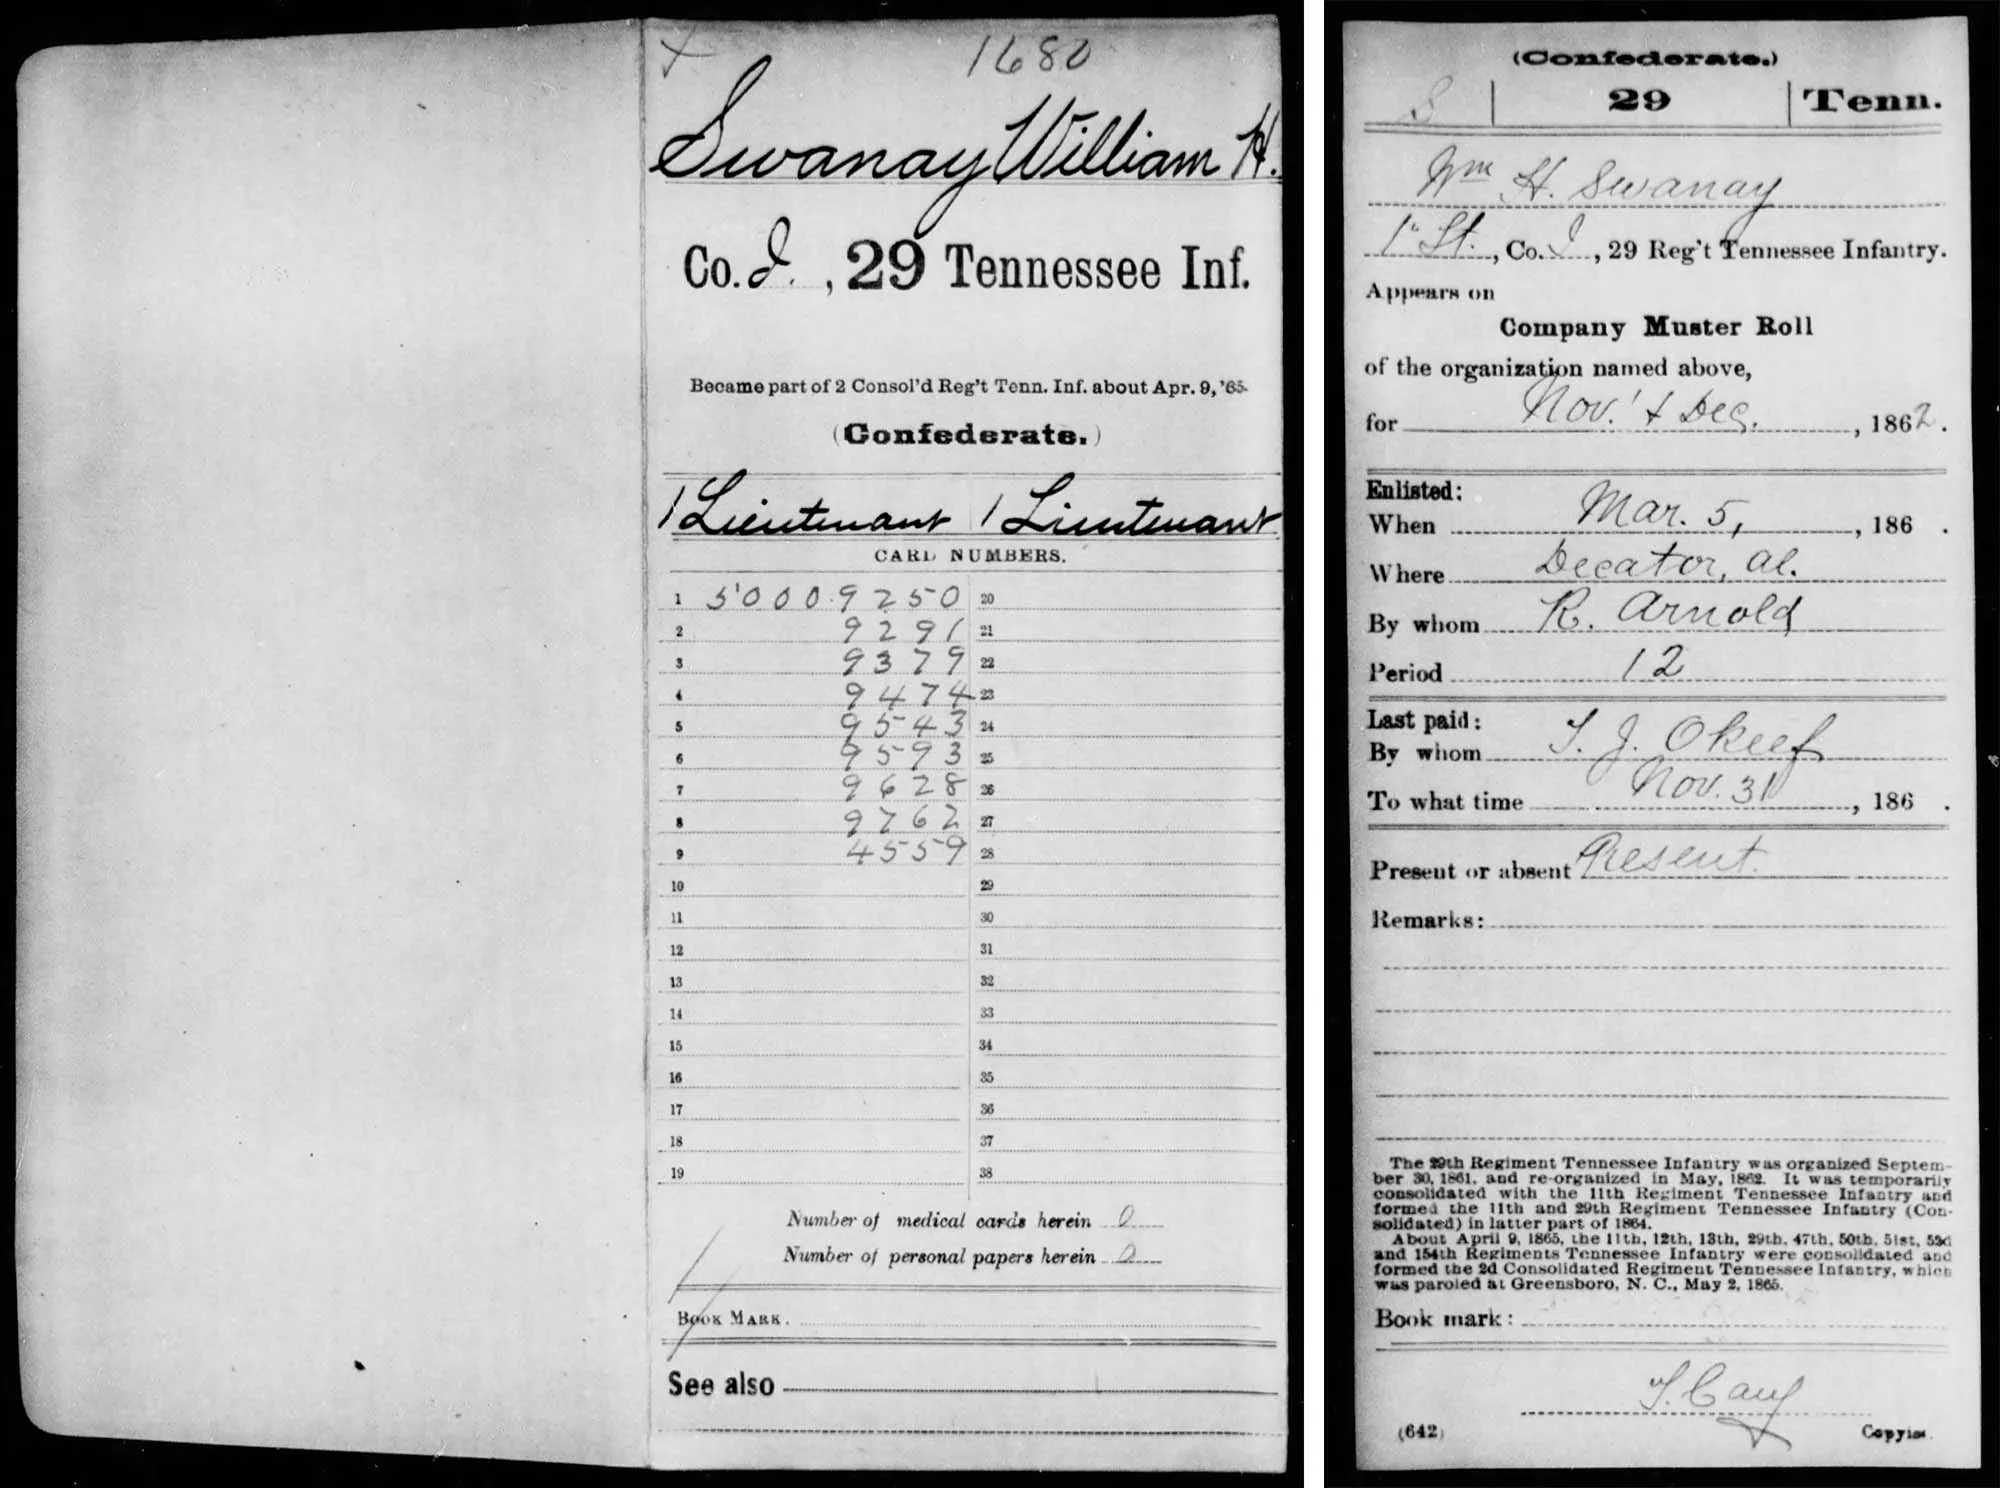 1680
Swanay William H.
Co. I., 29 Tennessee Inf.
Became part of 2 Consol'd Reg't Tenn. Inf. about Apr. 9, '65.
(Confederate.)
1 Lieutenant 1 Lieutenant
CARD NUMBERS.
1 50009250 20
2 9291 21
3 9379 22
4 9474 23
5 9543 24
6 9593 25
7 9628 26
8 9762 27
9 4559 28
10 29
11 30
12 31
13 32
14 33
15 34
16 35
17 36
18 37
19 38
Number of medical cards herein 0
Number of personal papers herein 0
BOOK MARK.
See also
(Confederate.)
S 29 Tenn.
Wm H. Swanay
1" Lt., Co. I, 29 Reg't Tennessee Infantry.
Appears on
Company Muster Roll
of the organization named above,
for Nov. & Dec., 1862.
Enlisted:
When Mar. 5, , 186 .
Where Decator, Al.
By whom R. Arnold
Period 12
Last paid:
By whom T. J. Okeef
To what time Nov. 31 , 186 .
Present or absent Present.
Remarks:
The 29th Regiment Tennessee Infantry was organized Septem-
ber 30, 1861, and re-organized in May, 1862. It was temporarily
consolidated with the 11th Regiment Tennessee Infantry and
formed the 11th and 29th Regiment Tennessee Infantry (Con-
solidated) in latter part of 1864.
About April 9, 1865, the 11th, 12th, 13th, 29th, 47th, 50th, 51st, 52d
and 154th Regiments Tennessee Infantry were consolidated and
formed the 2d Consolidated Regiment Tennessee Infantry, which
was paroled at Greensboro, N. C., May 2, 1865.
Book mark:
(642) Copyist.